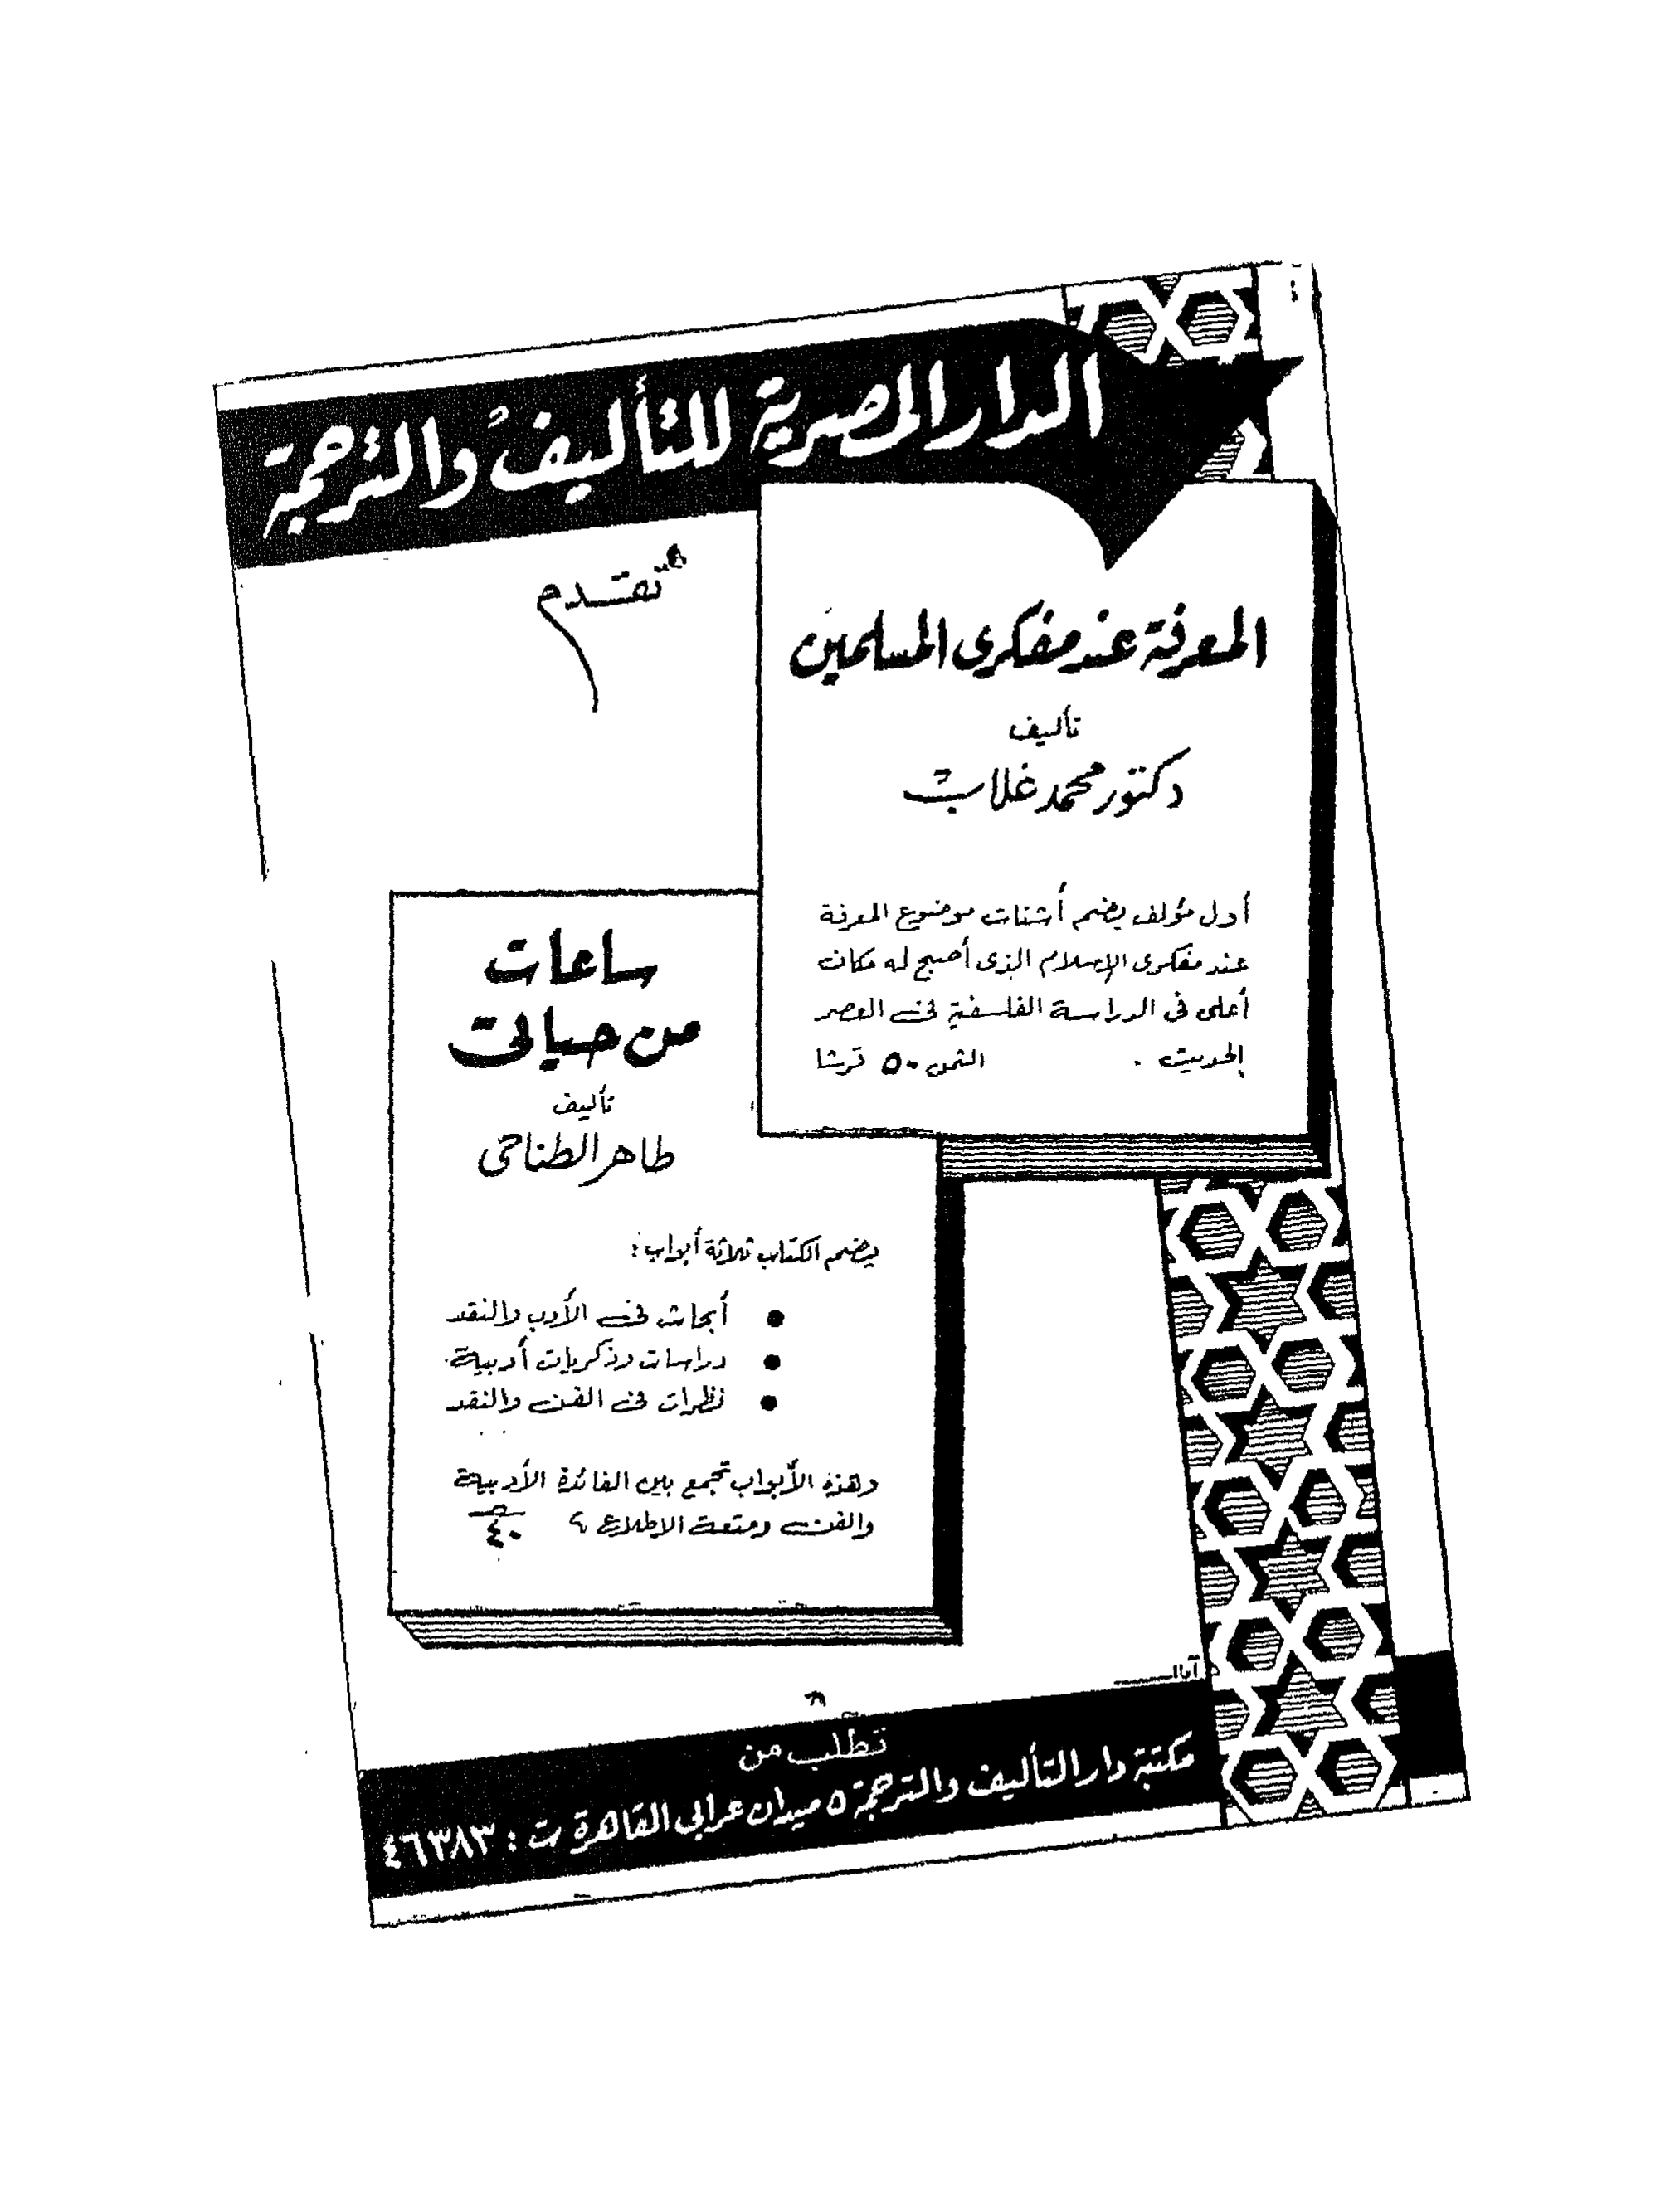 الدار المصرية للتأليف والترجمة
تقدم
المعرفة عند مفكرى المسلمين
تأليف
دكتور محمد غلاب
أول مؤلف يضم أشتات موضوع المعرفة
عند مفكرى الإسلام الذى أصبح له مكان
أعلى فى الدراسة الفلسفية فى العصر
الحديث . الثمن ٥٠ قرشا
ساعات
من حياتى
تأليف
طاهر الطناحى
يضم الكتاب ثلاثة أبواب :
● أبحاث فى الأدب والنقد
● دراسات وذكريات أدبية
● نظرات فى الفن والنقد
وهذه الأبواب تجمع بين الفائدة الأدبية
والفن ومتعة الاطلاع ٤٠
تطلب من
مكتبة دار التأليف والترجمة ٥ ميدان عرابى القاهرة ت : ٤٦٣٨٣